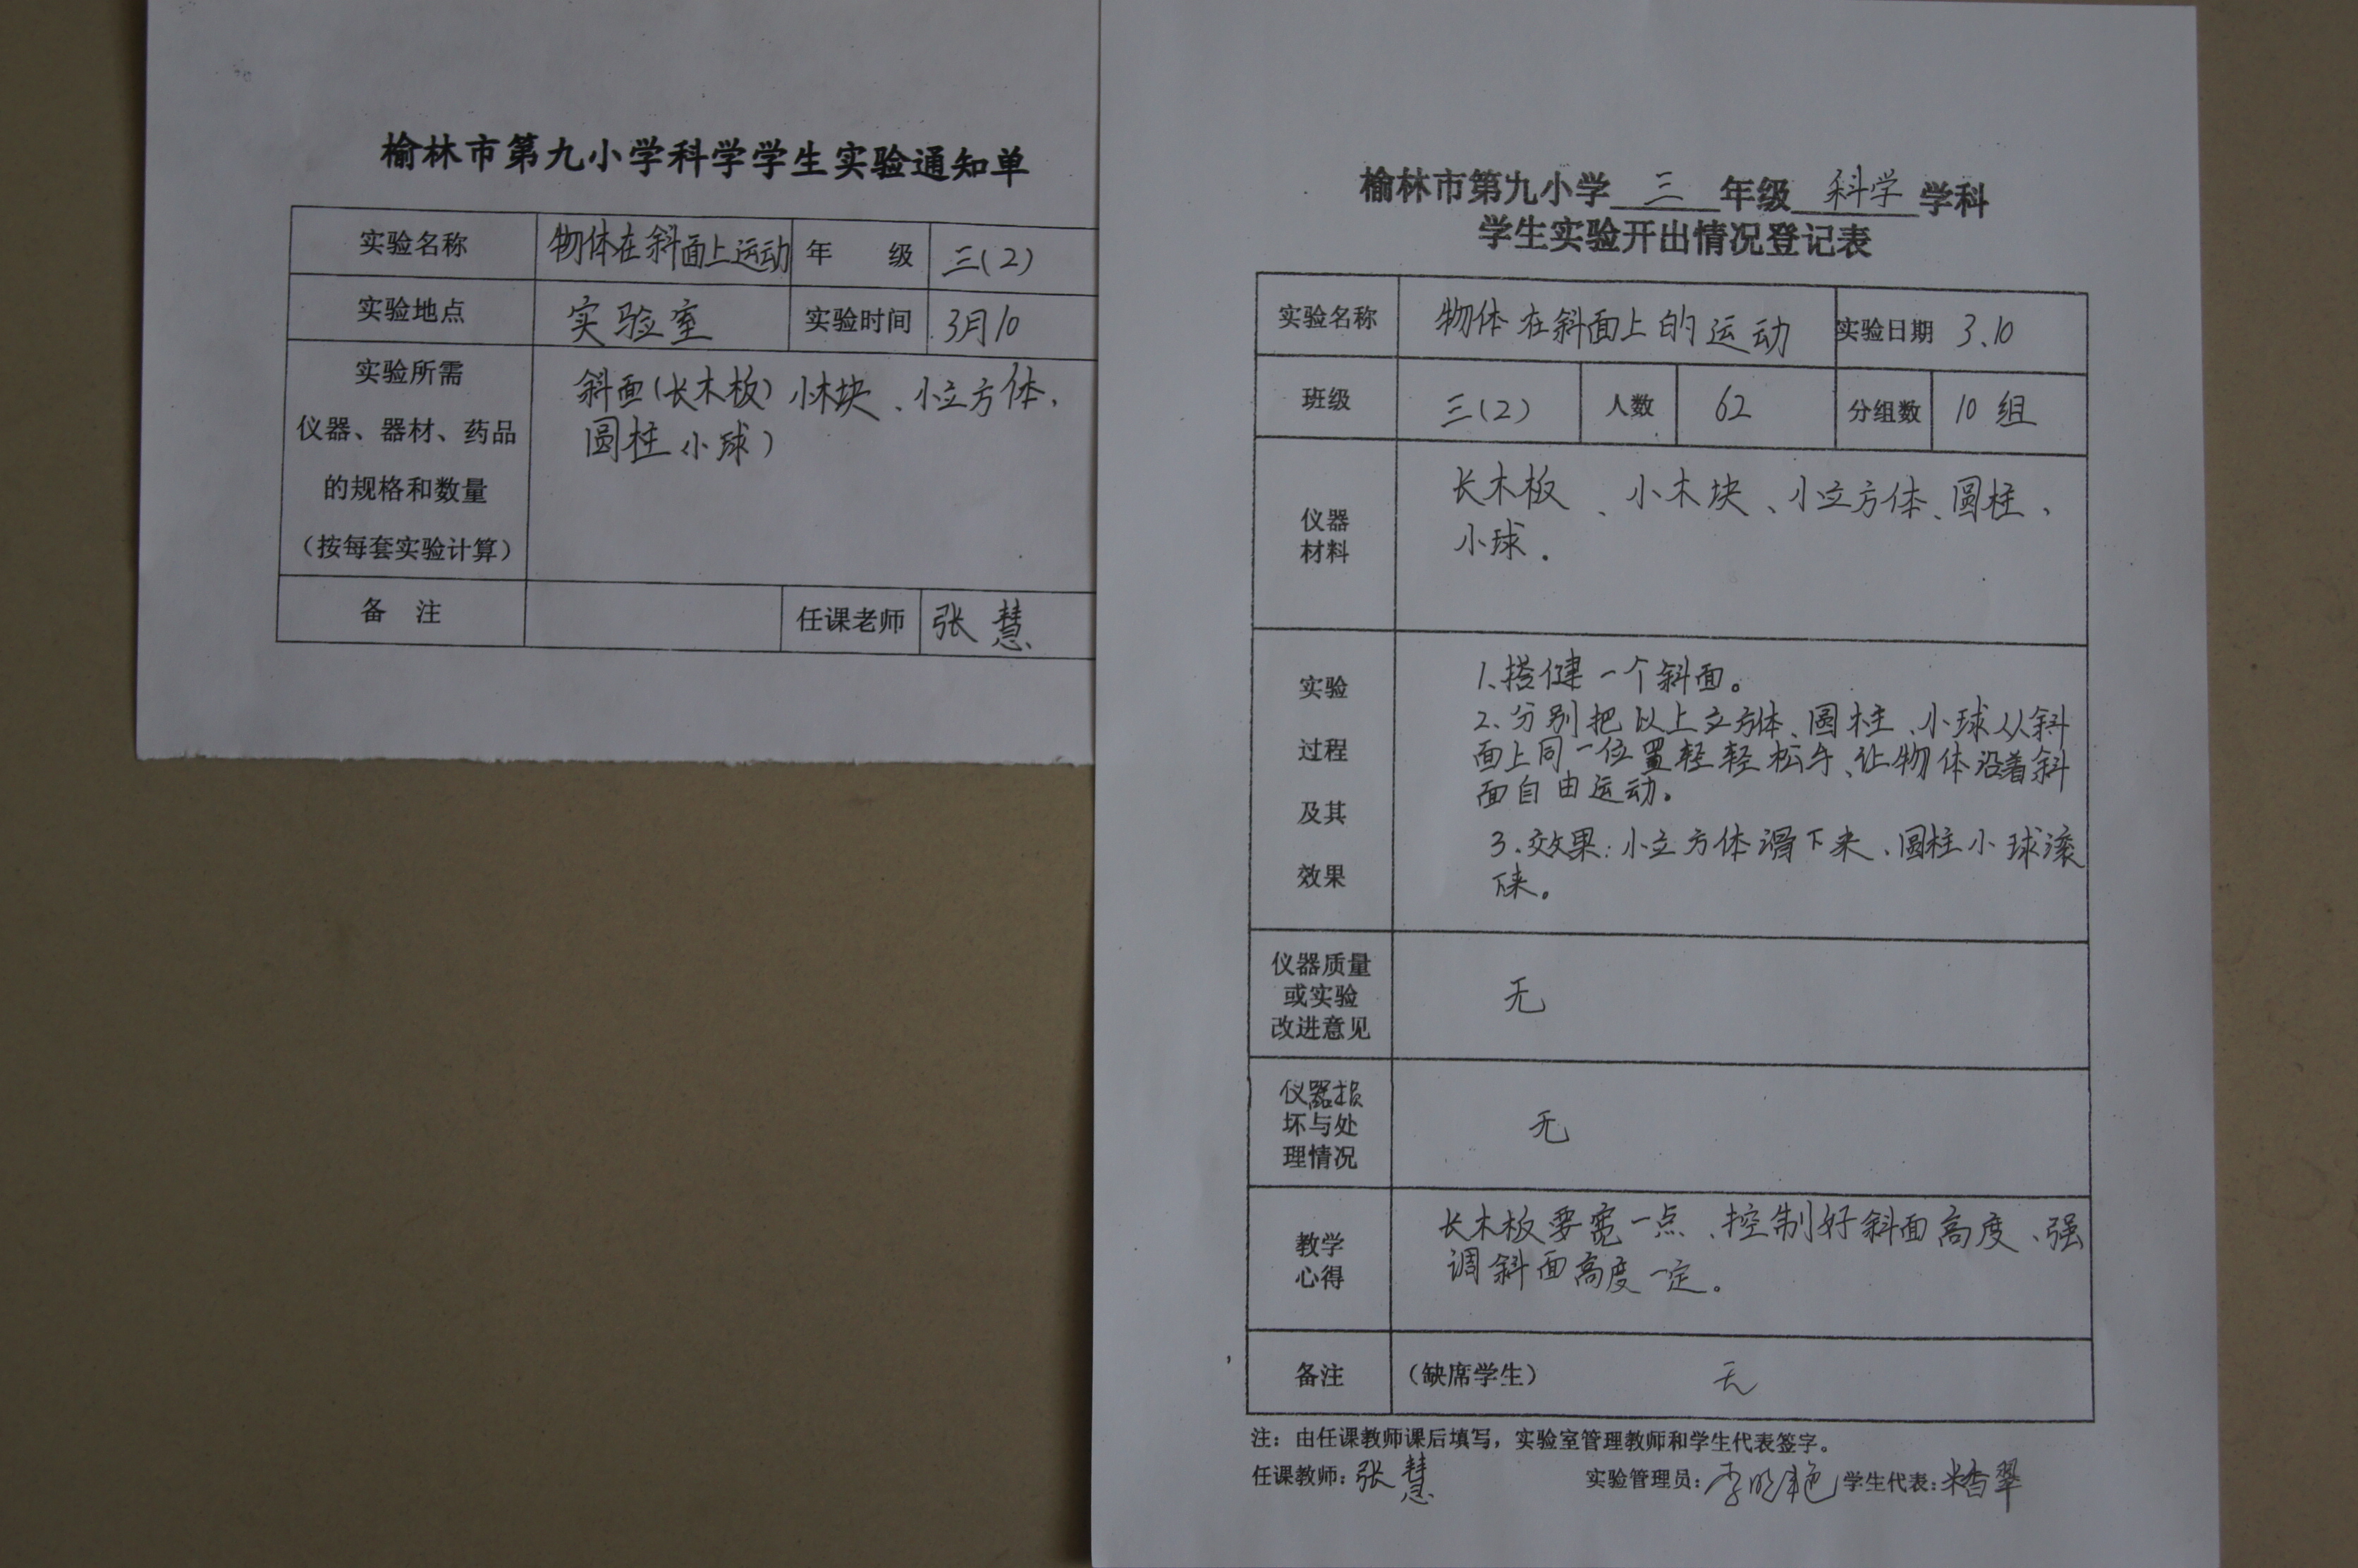 榆林市第九小学科学学生实验通知单
实验名称 物体在斜面上运动 年 级 三(2)
实验地点 实验室 实验时间 3月10
实验所需
仪器、器材、药品
的规格和数量
（按每套实验计算）
斜面(长木板) 小木块、小立方体、
圆柱 小球)
备 注 任课老师 张慧
榆林市第九小学 三 年级 科学 学科
学生实验开出情况登记表
实验名称 物体在斜面上的运动 实验日期 3.10
班级 三(2) 人数 62 分组数 10组
仪器
材料
长木板、小木块、小立方体、圆柱、
小球.
实验
过程
及其
效果
1、搭健一个斜面。
2、分别把以上立方体、圆柱、小球从斜
面上同一位置轻轻松手、让物体沿着斜
面自由运动。
3.效果:小立方体滑下来、圆柱小球滚
下来。
仪器质量
或实验
改进意见
无
仪器损
坏与处
理情况
无
教学
心得
长木板要宽一点、控制好斜面高度、强
调斜面高度一定。
备注 （缺席学生） 无
注：由任课教师课后填写，实验室管理教师和学生代表签字。
任课教师: 张慧 实验管理员: 李明艳 学生代表: